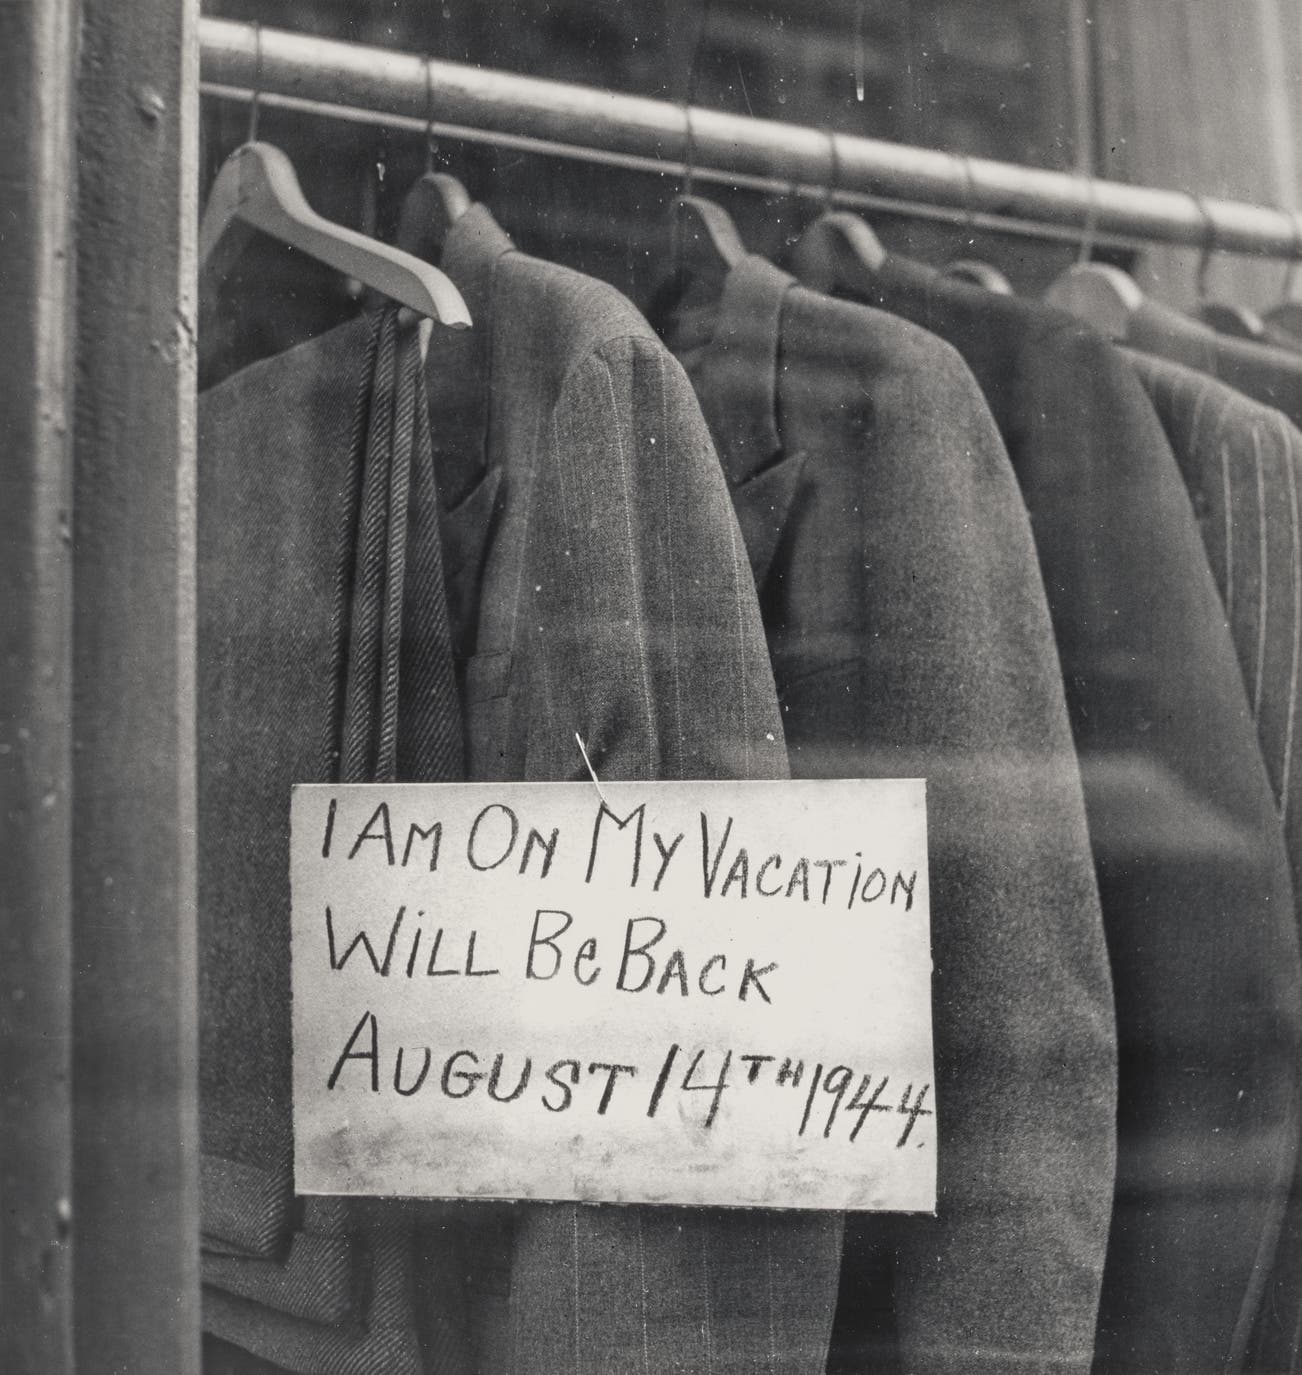 I Am On My Vacation
Will Be Back
August 14TH 1944.